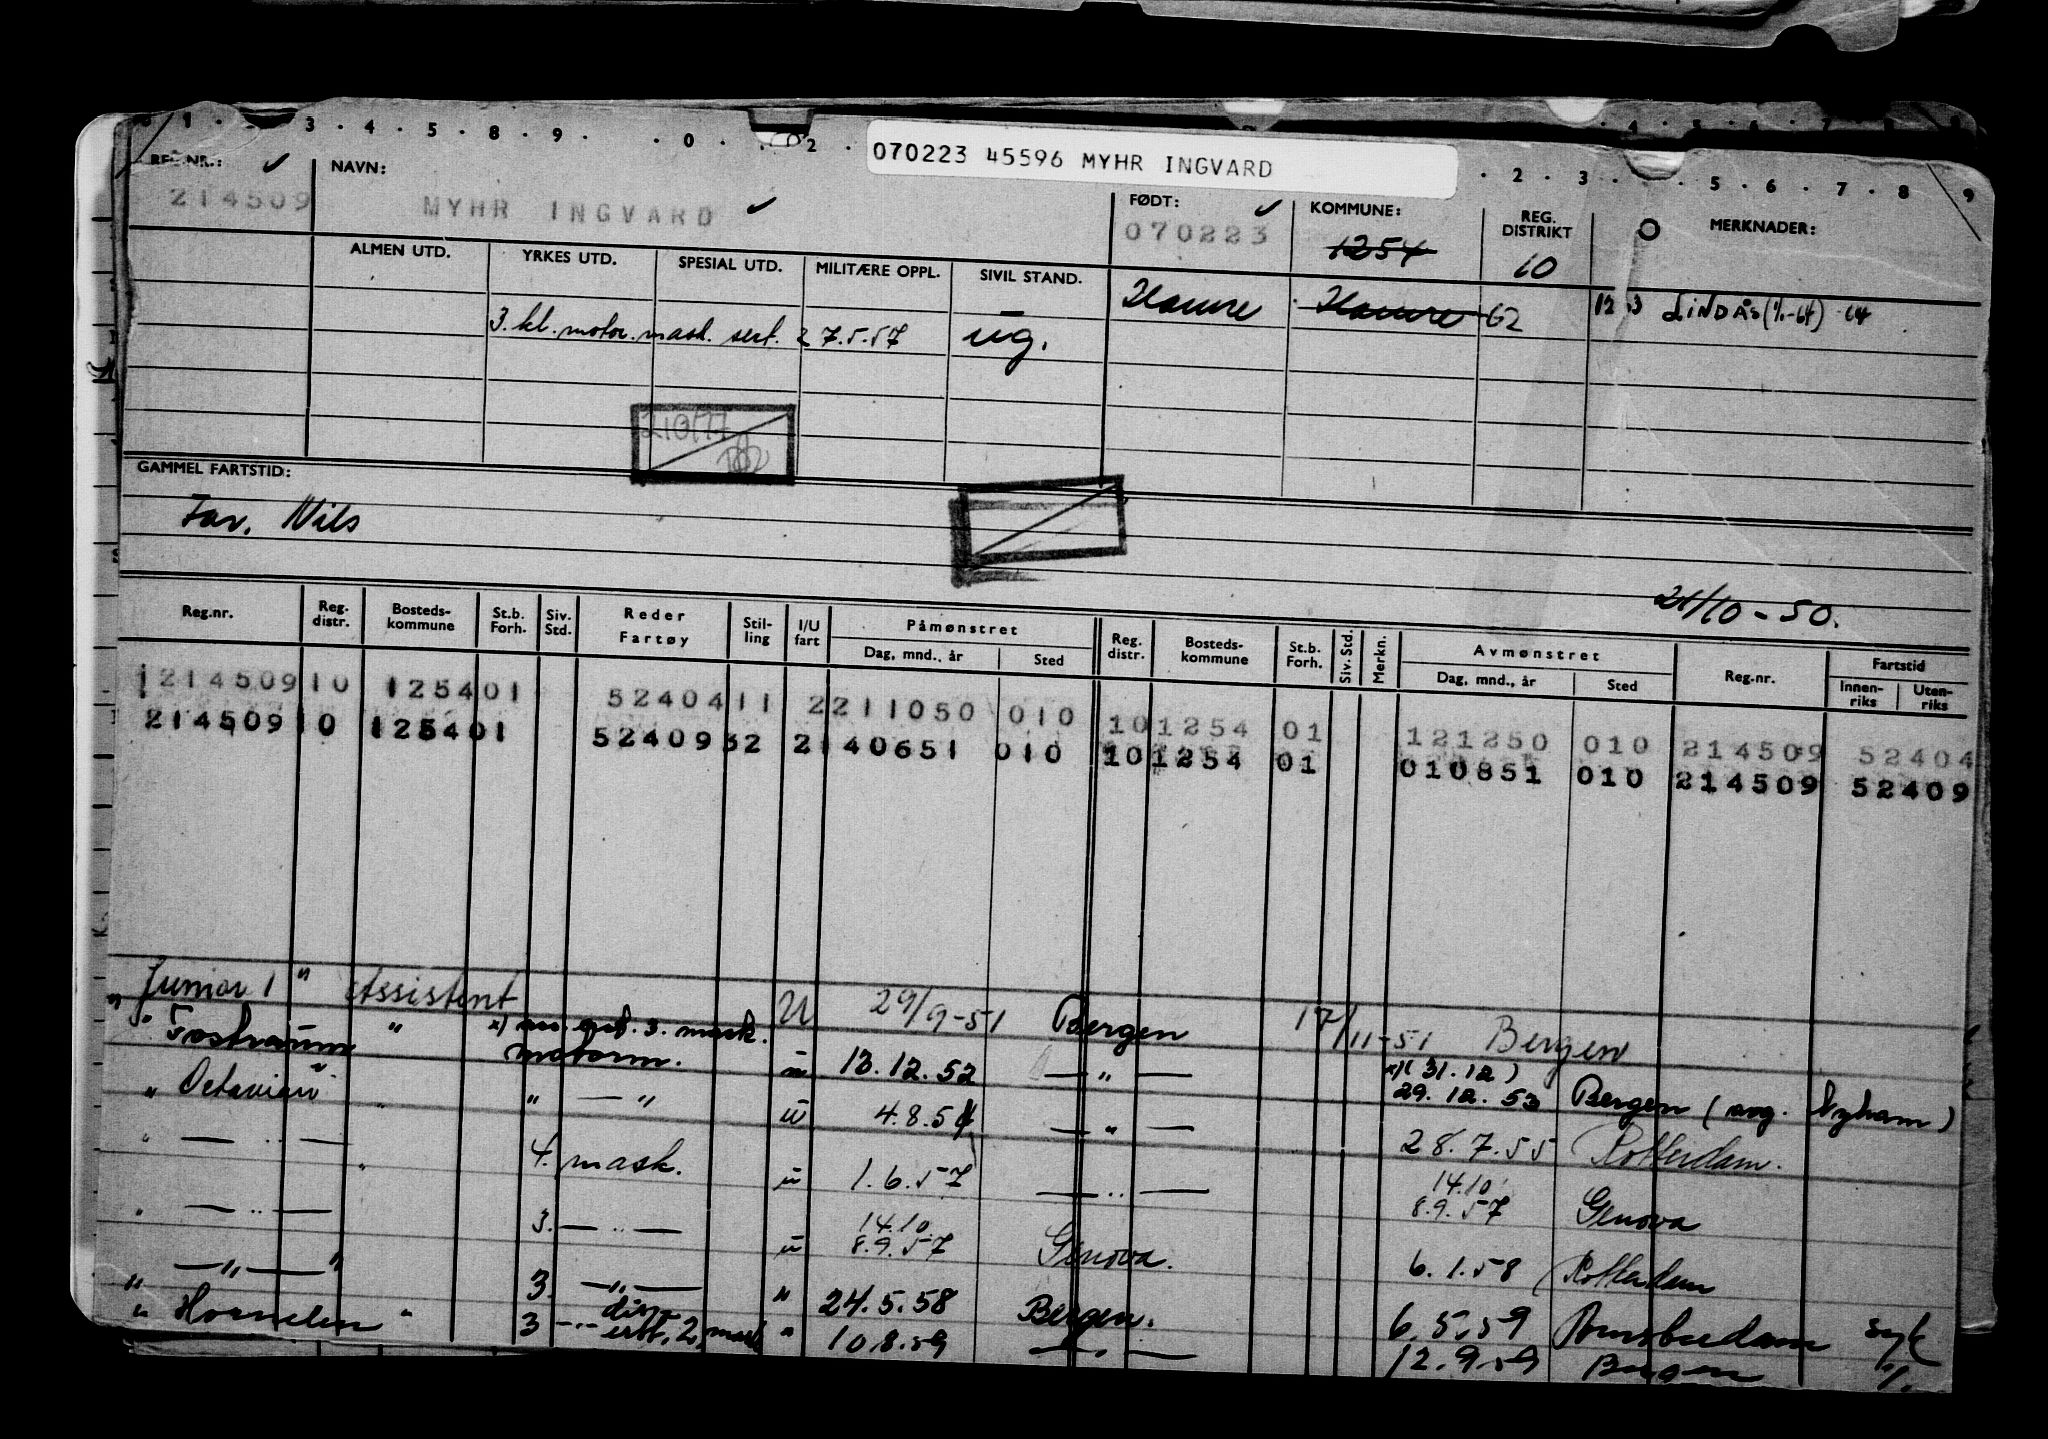 070223 45596 MYHR INGVARD
REG.NR.: NAVN: FØDT: KOMMUNE: REG. DISTRIKT MERKNADER:
214509 MYHR INGVARD 070223 1254 10
ALMEN UTD. YRKES UTD. SPESIAL UTD. MILITÆRE OPPL. SIVIL STAND.
3. kl. motor. mask. sert. 27.5.57 ug. Hamre Hamre 62 LINDÅS (1/1-64) 64
GAMMEL FARTSTID:
Far. Nils
21/10-50.
Reg.nr. Reg. distr. Bosteds- kommune St.b. Forh. Siv. Std. Reder Fartøy Stil- ling I/U fart Påmønstret Dag, mnd., år Sted Reg. distr. Bosteds- kommune St.b. Forh. Siv. Std. Merkn. Avmønstret Dag, mnd., år Sted Reg.nr. Fartstid Innen- riks Uten- riks
214509 10 1254 01 52404 11 2 211050 010 10 1254 01 121250 010 214509 52404
214509 10 1254 01 52409 32 2 140651 010 10 1254 01 010851 010 214509 52409
Junior 1 " Assistent U 29/9-51 Bergen 17/11-51 Bergen
" Fostraum " x) mask. motorm. u 13.12.52 — " — x) (31.12) 29.12.53 Bergen (
" Octavian " " — " u 4.8.54 — " — 28.7.55 Rotterdam.
" — " — " 4. mask. u 1.6.57 — " — 14.10 8.9.57 Genova
" — " — 3. — " — u 14.10 8.9.57 Genova. 6.1.58 Rotterdam
" — " — " 3. — " — " 24.5.58 Bergen. 6.5.59 syk
" Hornelen " 3 — " — disp. 2. mask " 10.8.59 — " — 12.9.59 Bergen